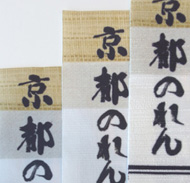 京都のれん
京都のれん
京都の